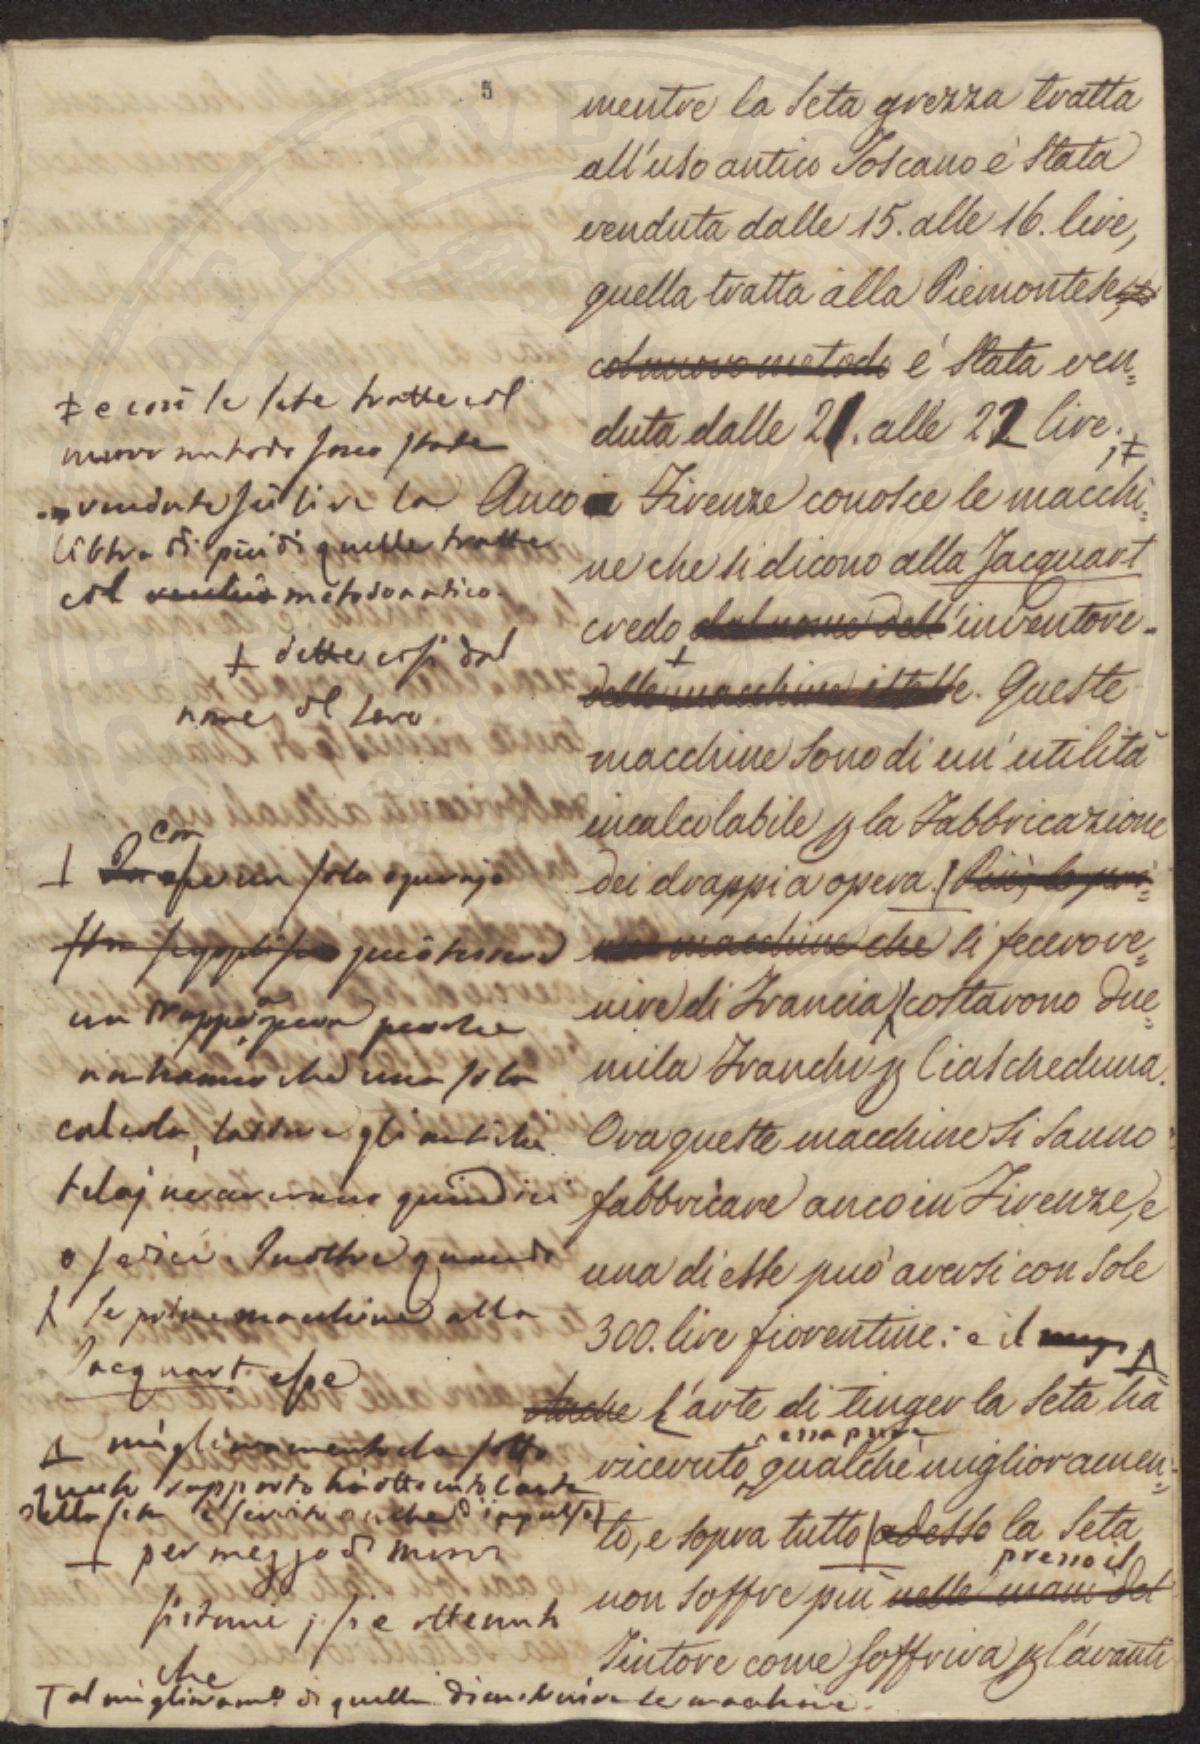 5
mentre la Seta grezza tratta
all'uso antico Toscano è stata
venduta dalle 15. alle 16. lire,
quella tratta alla Piemontese,
col nuovo metodo è stata ven=
duta dalle 21. alle 22 lire.
;‡
Anco Firenze conosce le macchi=
ne che si dicono alla Jacquart
credo dal nome dell'inventore.
+
delle macchine istesse. Queste
macchine sono di un'utilità
incalcolabile p la Fabbricazione
dei drappi a opera. (Più, le pri=
me macchine che si fecero ve=
nire di Francia costarono due=
mila Franchi p Ciascheduna.
Ora queste macchine si sanno
fabbricare anco in Firenze, e
una di esse può aversi con sole
300. lire fiorentine: e il
Anche l'arte di tinger la Seta ha
essa pure
ricevuto qualche miglioramen=
to, e sopra tutto adesso la Seta
presso il
non soffre più nelle mani del
Tintore come soffriva p l'avanti
‡ e così le sete tratte col
nuovo metodo sono state
vendute sei lire la
libbra di più di quelle tratte
col vecchio metodo antico.
+ dette così dal
nome del loro
Con
esse un solo operajo
può tessere
un drappo a opera perchè
non hanno che una sola
calcola, laddove gli antichi
telaj ne avevano quindici
o sedici. Inoltre quando
le prime macchine alla
Jacquart esse
miglioramento che sotto
questo rapporto ha ottenuto l'arte
della seta è servito anche d'impulso
per mezzo di nuovi
sistemi, si è ottenuto
che
al miglioram.o di quelli di costruire le macchine.